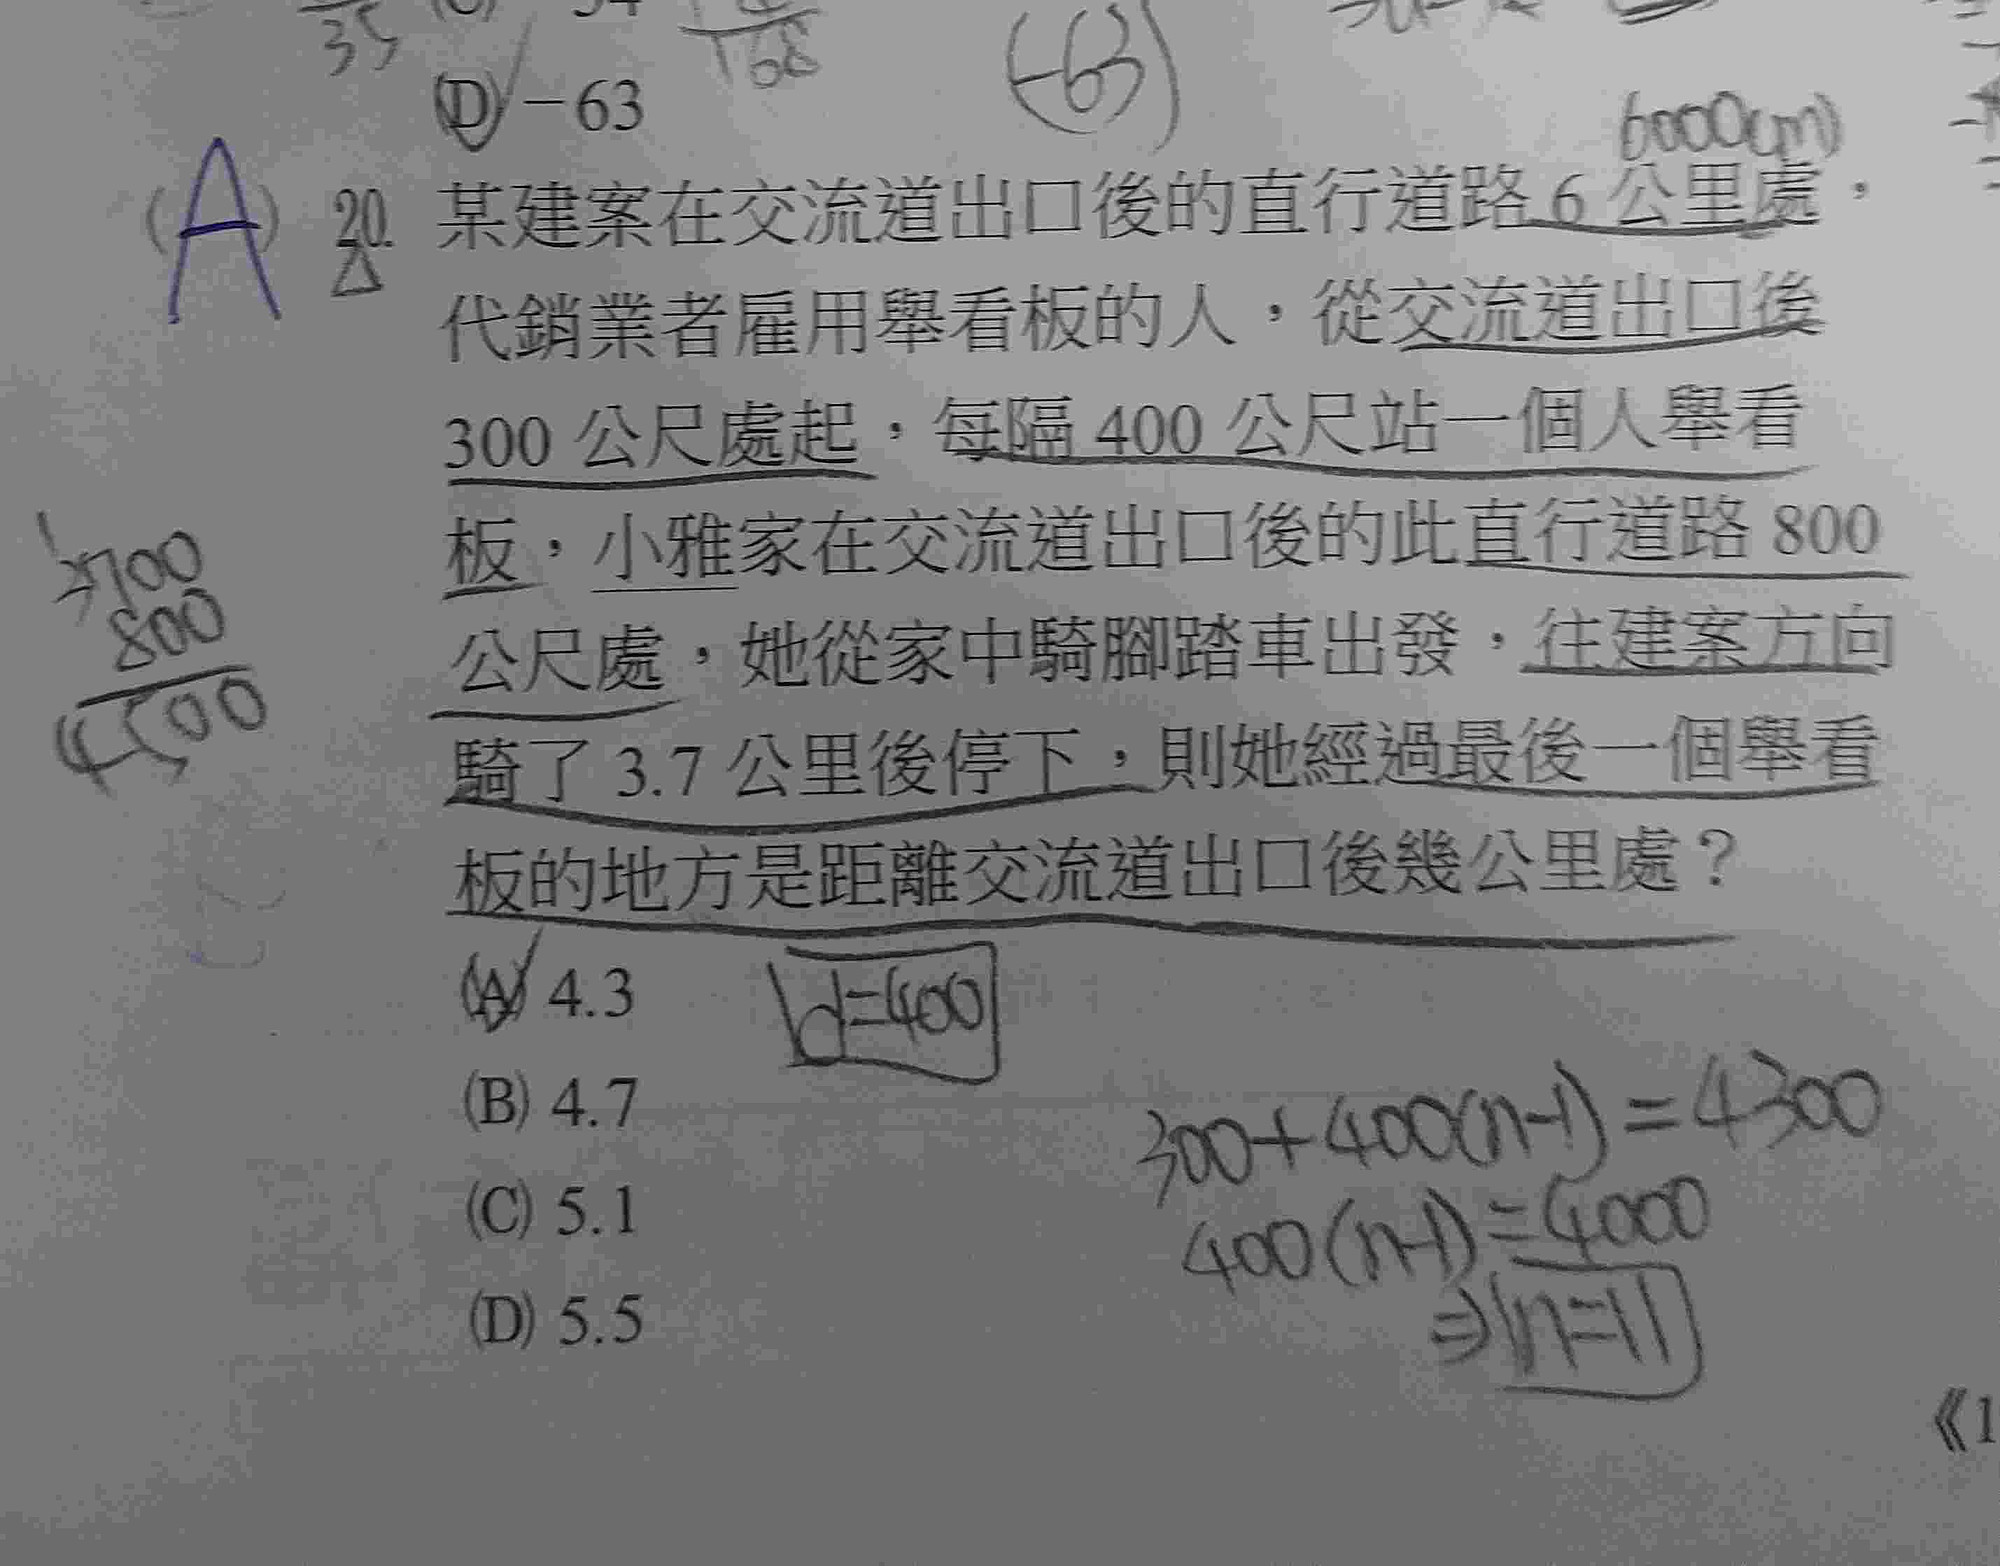 35
168
(-63)
(D) －63
6000(m)
(A) 20. 某建案在交流道出口後的直行道路 6 公里處，
代銷業者雇用舉看板的人，從交流道出口後
300 公尺處起，每隔 400 公尺站一個人舉看
板，小雅家在交流道出口後的此直行道路 800
公尺處，她從家中騎腳踏車出發，往建案方向
騎了 3.7 公里後停下，則她經過最後一個舉看
板的地方是距離交流道出口後幾公里處？
3700
800
4500
(A) 4.3
d=400
(B) 4.7
300+400(n-1)=4300
(C) 5.1
400(n-1)=4000
(D) 5.5
⇒n=11
《1